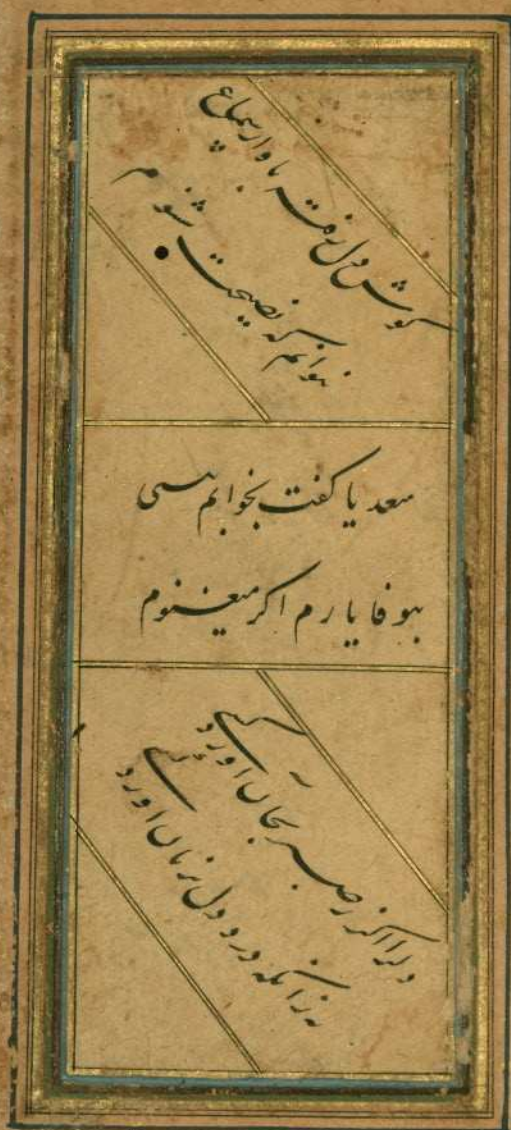 گوش دل رفته بآواز سماع
نتوانم که نصیحت شنوم
سعدیا گفت بخوابم بینی
بیوفا یارم اگر میغنوم
دلدا اگر ز صبر بجان آوردی
نه زانکه درد دل بزبان آوردی